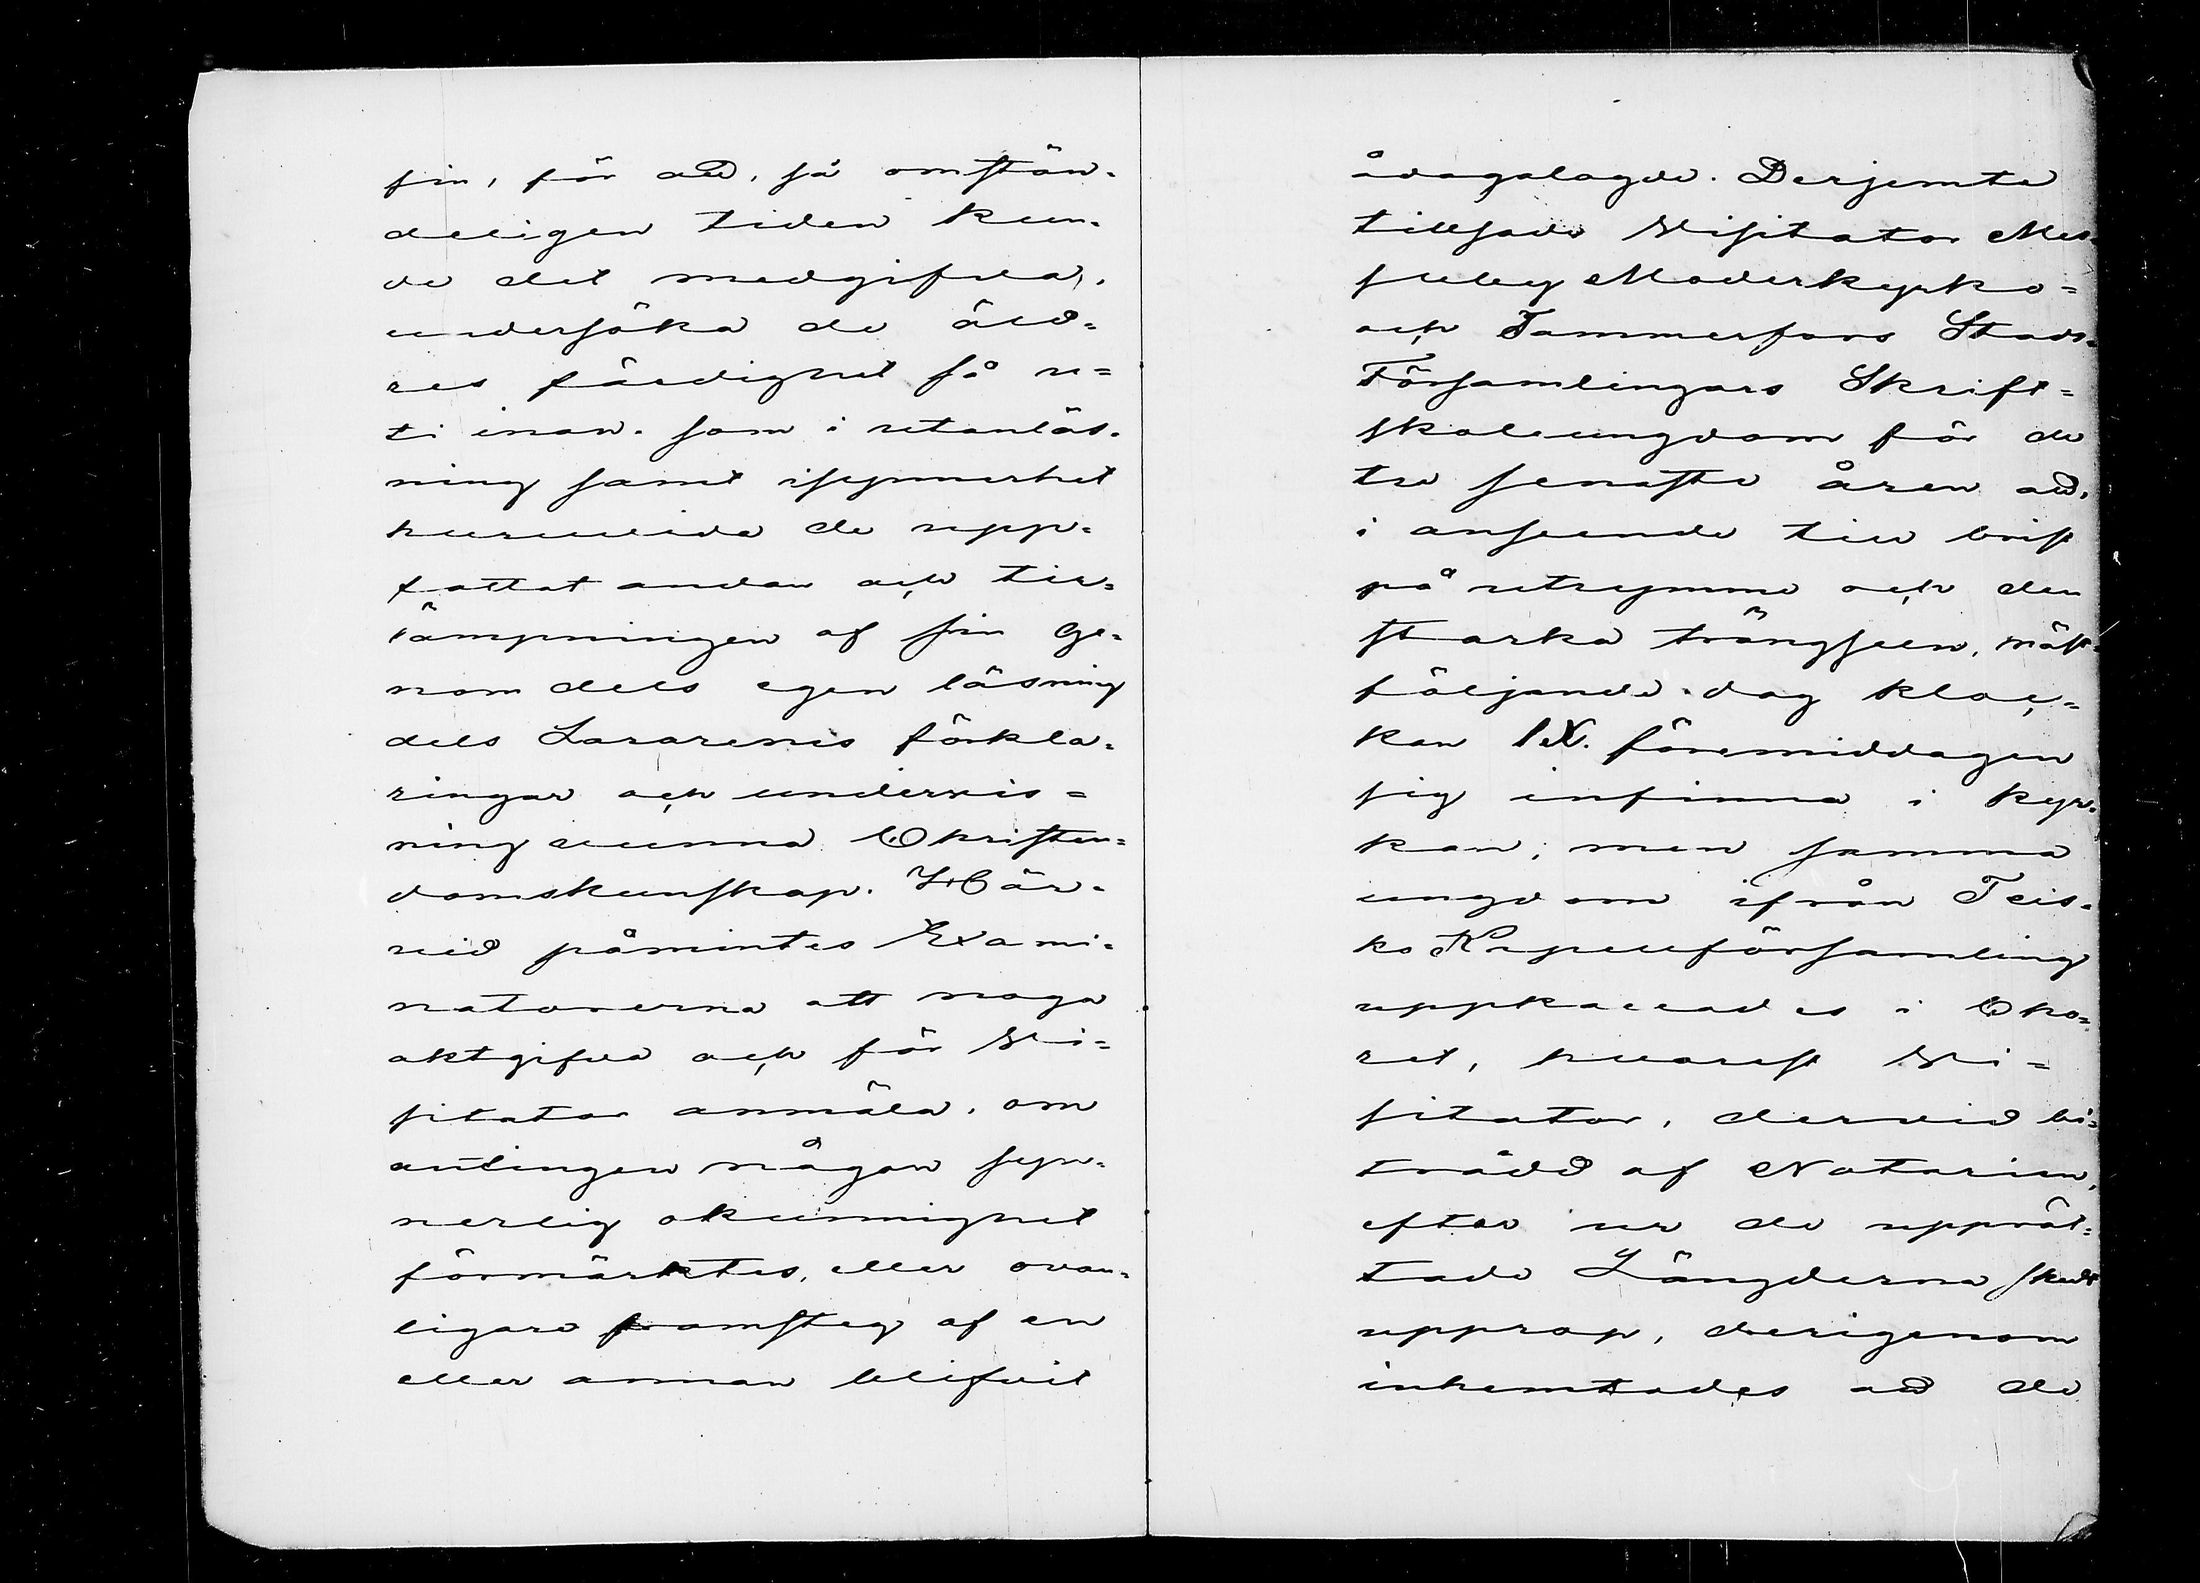 sin, för att, så omstän-
deligen tiden kun-
de det medgifva,
undersöka de äld-
res färdighet så u-
ti inan- som i utanläs-
ning samt isynnerhet
huruvida de upp-
fattat andan och till-
lämpningen af sin ge-
nom dels egen läsning
dels Lärarenes förkla-
ringar och undervis-
ning vunna Christen-
domskunskap. Här-
vid påmintes Exami-
natorerna att noga
aktgifva och för Vi-
sitator anmäla, om
antingen någon syn-
nerlig okunnighet
förmärktes, eller ovan-
ligare framsteg af en
eller annan blifvit
ådagalagde. Derjemte
tillsade Visitator Mes-
suby Moderkyrko-
och Tammerfors Stads-
Församlingars Skrift-
skoleungdom för de
tre senaste åren att,
i anseende till brist
på utrymme och den
starka trängseln, näst-
följande dag kloc-
kan IX. föremiddagen
sig infinna i kyr-
kan; men samma
ungdom ifrån Teis-
ko Kapellförsamling
uppkallades i Cho-
ret, hvarest Vi-
sitator, dervid bi-
trädd af Notarien,
efter ur de upprät-
tade Längderna skedt
upprop, derigenom
inhemtades att de